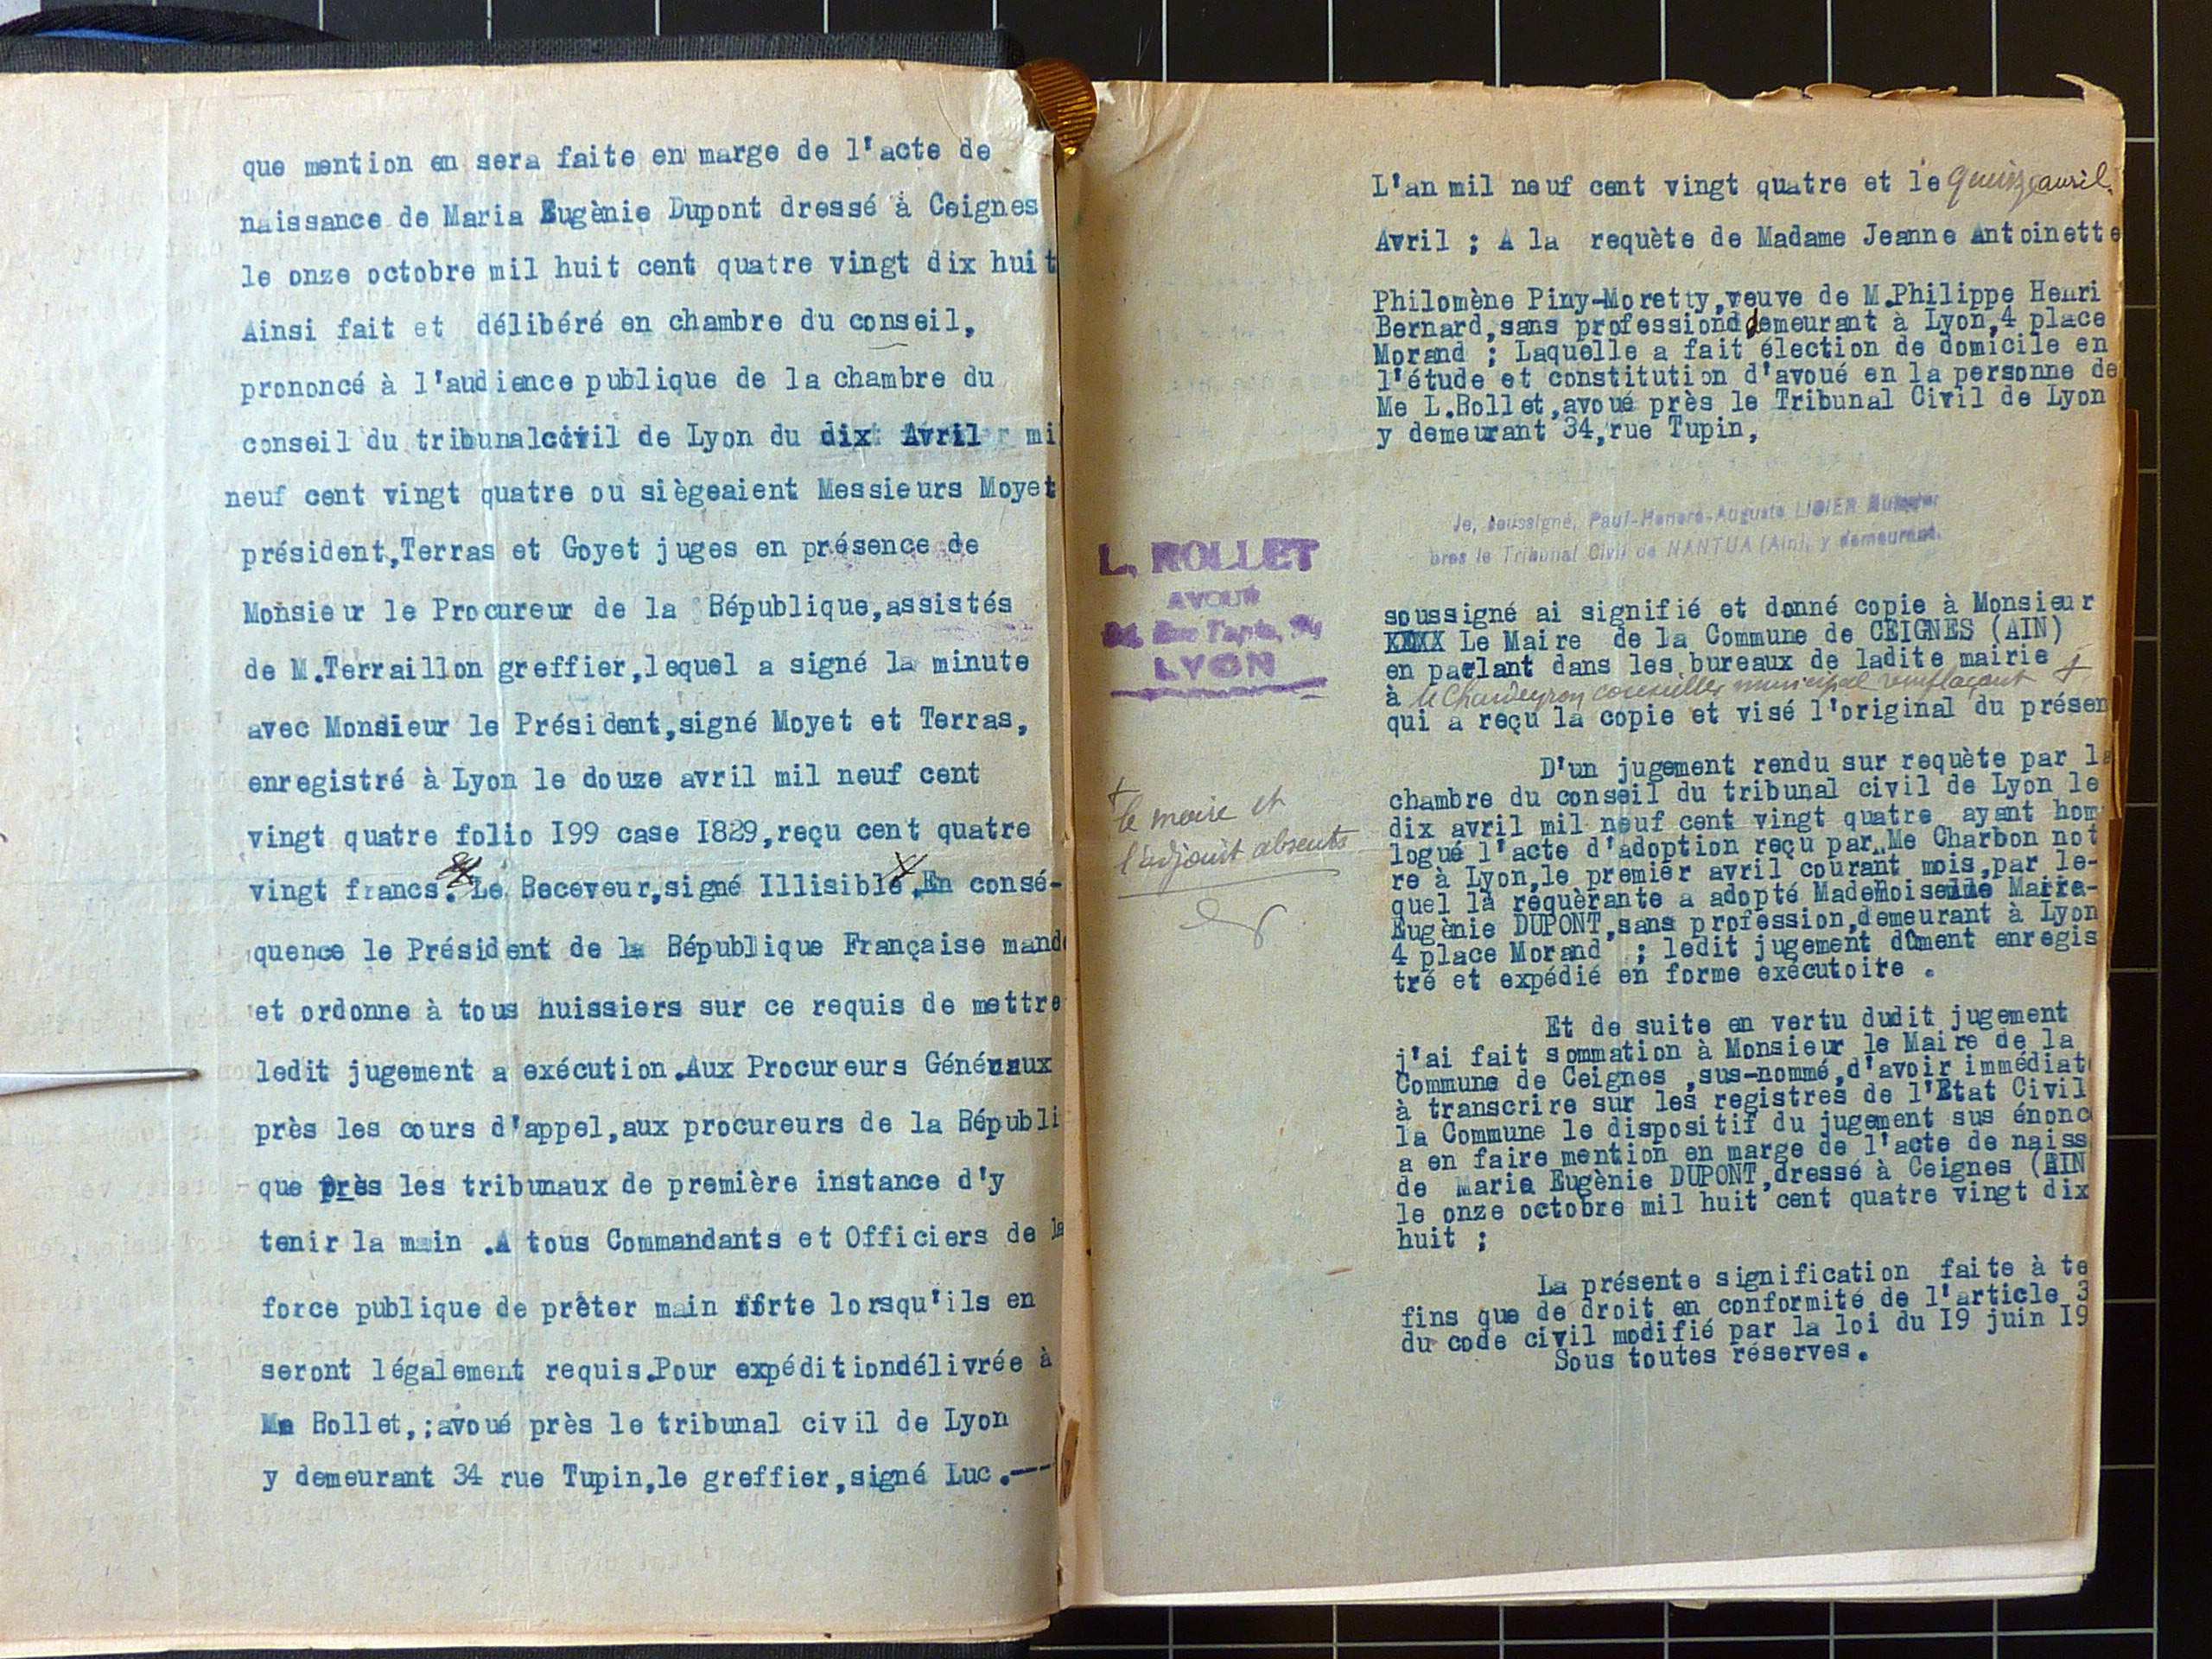 que mention en sera faite en marge de l'acte de
naissance de Maria Eugènie Dupont dressé à Ceignes
le onze octobre mil huit cent quatre vingt dix huit
Ainsi fait et délibéré en chambre du conseil,
prononcé à l'audience publique de la chambre du
conseil du tribunalcivil de Lyon du dix Avril mi
neuf cent vingt quatre ou siègeaient Messieurs Moyet
président,Terras et Goyet juges en présence de
Monsieur le Procureur de la République,assistés
de M.Terraillon greffier,lequel a signé la minute
avec Monsieur le Président,signé Moyet et Terras,
enregistré à Lyon le douze avril mil neuf cent
vingt quatre folio I99 case I829,reçu cent quatre
vingt francs. Le Receveur,signé Illisible.En consé-
quence le Président de la République Française mande
et ordonne à tous huissiers sur ce requis de mettre
ledit jugement a exécution.Aux Procureurs Généraux
près les cours d'appel,aux procureurs de la Républi
que près les tribunaux de première instance d'y
tenir la main .A tous Commandants et Officiers de la
force publique de prêter main forte lorsqu'ils en
seront légalement requis.Pour expéditiondélivrée à
Me Rollet,;avoué près le tribunal civil de Lyon
y demeurant 34 rue Tupin,le greffier,signé Luc.---
L'an mil neuf cent vingt quatre et le quinze avril.
Avril ; A la requète de Madame Jeanne Antoinette
Philomène Piny-Moretty,veuve de M.Philippe Henri
Bernard,sans profession demeurant à Lyon,4 place
Morand ; Laquelle a fait élection de domicile en
l'étude et constitution d'avoué en la personne de
Me L.Rollet,avoué près le Tribunal Civil de Lyon
y demeurant 34,rue Tupin,
Je, soussigné, Paul-Honoré-Auguste LIGIER Huissier
près le Tribunal Civil de NANTUA (Ain), y demeurant.
L. ROLLET
AVOUÉ
34, Rue Tupin, 34
LYON
soussigné ai signifié et donné copie à Monsieur
XXXX Le Maire de la Commune de CEIGNES (AIN)
en parlant dans les bureaux de ladite mairie +
à conseiller municipal remplaçant
qui a reçu la copie et visé l'original du présen
+
le maire et
l'adjoint absents
D'un jugement rendu sur requète par la
chambre du conseil du tribunal civil de Lyon le
dix avril mil neuf cent vingt quatre ayant hom
logué l'acte d'adoption reçu par Me Charbon not
re à Lyon,le premier avril courant mois,par le-
quel la requèrante a adopté Mademoiselle Marie-
Eugènie DUPONT,sans profession,demeurant à Lyon
4 place Morand ; ledit jugement dûment enregis
tré et expédié en forme exécutoire .
Et de suite en vertu dudit jugement
j'ai fait sommation à Monsieur le Maire de la
Commune de Ceignes ,sus-nommé,d'avoir immédiat
à transcrire sur les registres de l'Etat Civil
la Commune le dispositif du jugement sus énonc
a en faire mention en marge de l'acte de naiss
de Maria Eugènie DUPONT,dressé à Ceignes (AIN
le onze octobre mil huit cent quatre vingt dix
huit ;
La présente signification faite à te
fins que de droit en conformité de l'article 3
du code civil modifié par la loi du I9 juin I9
Sous toutes réserves.